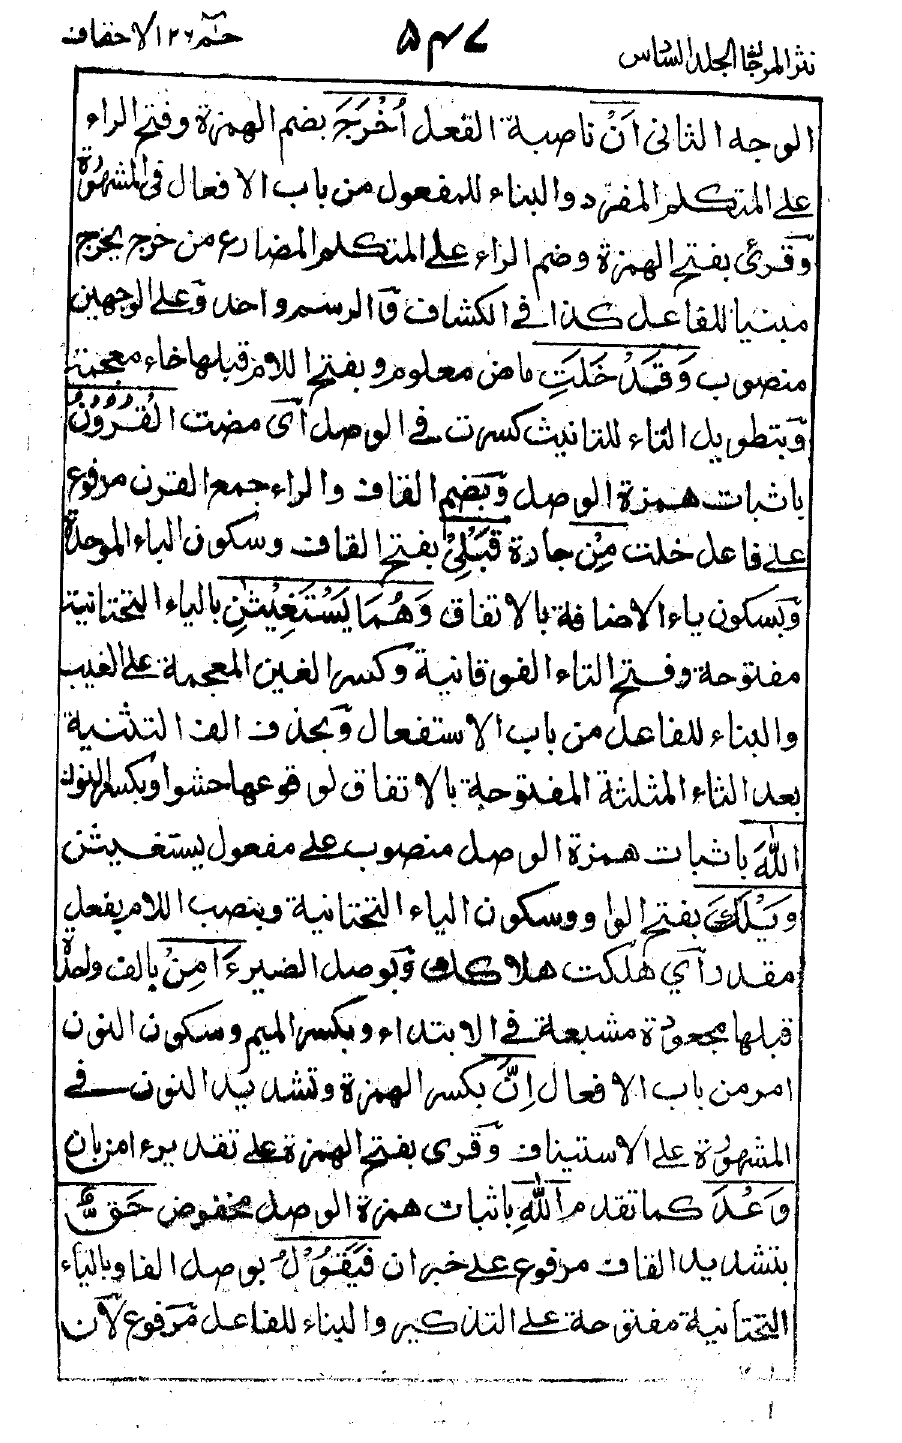 نثر المرجان الجلد السادس
٥٤٧
حٰمٓ ٢٦ الاحقاف
الوجه الثانى اَنْ ناصبة الفعل اُخْرَجَ بضم الهمزة وفتح الراء
على المتكلم المفرد والبناء للمفعول من باب الافعال فى المشهورة
وَقرئ بفتح الهمزة وضم الراء على المتكلم المضارع من خرج يخرج
مبنيا للفاعل كذا فى الكشاف وَالرسم واحد وَعلى الوجهين
منصوب وَقَدْ خَلَتِ ماض معلوم وبفتح اللام قبلها خاء معجمة
وَبتطويل التاء للتانيث كسرت فى الوصل اَى مضت الْقُرُوْنُ
باثبات همزة الوصل وَبضم القاف والراء جمع القرن مرفوع
على فاعل خلت مِنْ جادة قَبْلِىْ بفتح القاف وسكون الباء الموحدة
وَبسكون ياء الاضافة بالاتفاق وَهُمَا يَسْتَغِيْثٰنِ بالياء التحتانية
مفتوحة وفتح التاء الفوقانية وكسر الغين المعجمة على الغيب
والبناء للفاعل من باب الاستفعال وَبحذف الف التثنية
بعد الثاء المثلثة المفتوحة بالاتفاق لوقوعها حشوا وَبكسر النون
اللّٰهَ باثبات همزة الوصل منصوب على مفعول يستغيثن
وَيْلَكَ بفتح الواو وسكون الياء التحتانية وبنصب اللام بفعل
مقدر اَى هلكت هلاكك وَبوصل الضمير ءَامِنْ بالف واحدة
قبلها مجعودة مشبعة فى الابتداء وبكسر الميم وسكون النون
امر من باب الافعال اِنَّ بكسر الهمزة وتشديد النون فى
المشهورة على الاستيناف وَقرى بفتح الهمزة على تقدير ءامن بان
وَعْدَ كما تقدم اللّٰهِ باثبات همزة الوصل مخفوض حَقٌّ
بتشديد القاف مرفوع على خبر ان فَيَقُوْلُ بوصل الفا وبالياء
التحتانية مفتوحة على التذكير والبناء للفاعل مَرفوع لاَن